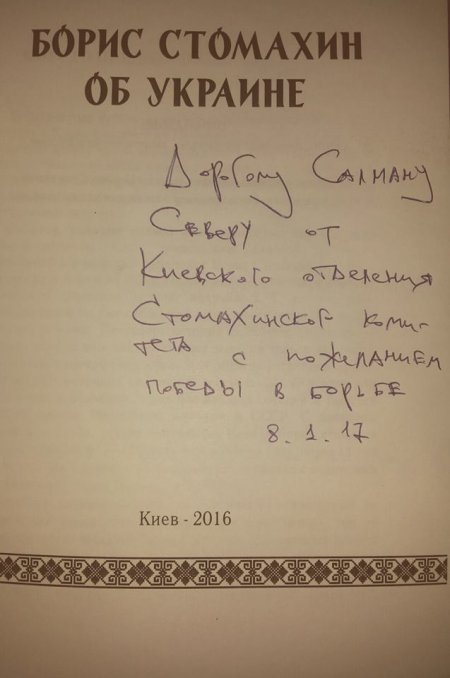 БОРИС СТОМАХИН
ОБ УКРАИНЕ
Дорогому Салману
Северу от
Киевского отделения
Стомахинског коми-
тета с пожеланием
победы в борьбе
8.1.17
Киев - 2016